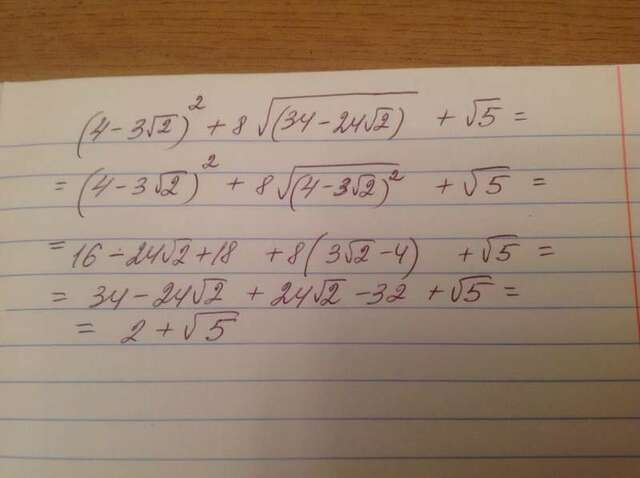 (4-3√2)² + 8√(34-24√2) + √5 =
= (4-3√2)² + 8√(4-3√2)² + √5 =
= 16-24√2+18 +8(3√2-4) +√5 =
= 34-24√2 + 24√2-32 +√5 =
= 2+√5